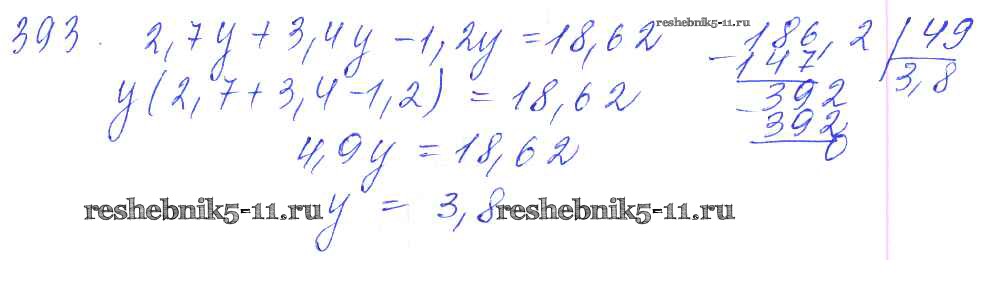 393. 2,7y + 3,4y - 1,2y = 18,62
y(2,7 + 3,4 - 1,2) = 18,62
4,9y = 18,62
y = 3,8
reshebnik5-11.ru
reshebnik5-11.ru
reshebnik5-11.ru
- 186,2 | 49
147 3,8
- 392
392
0